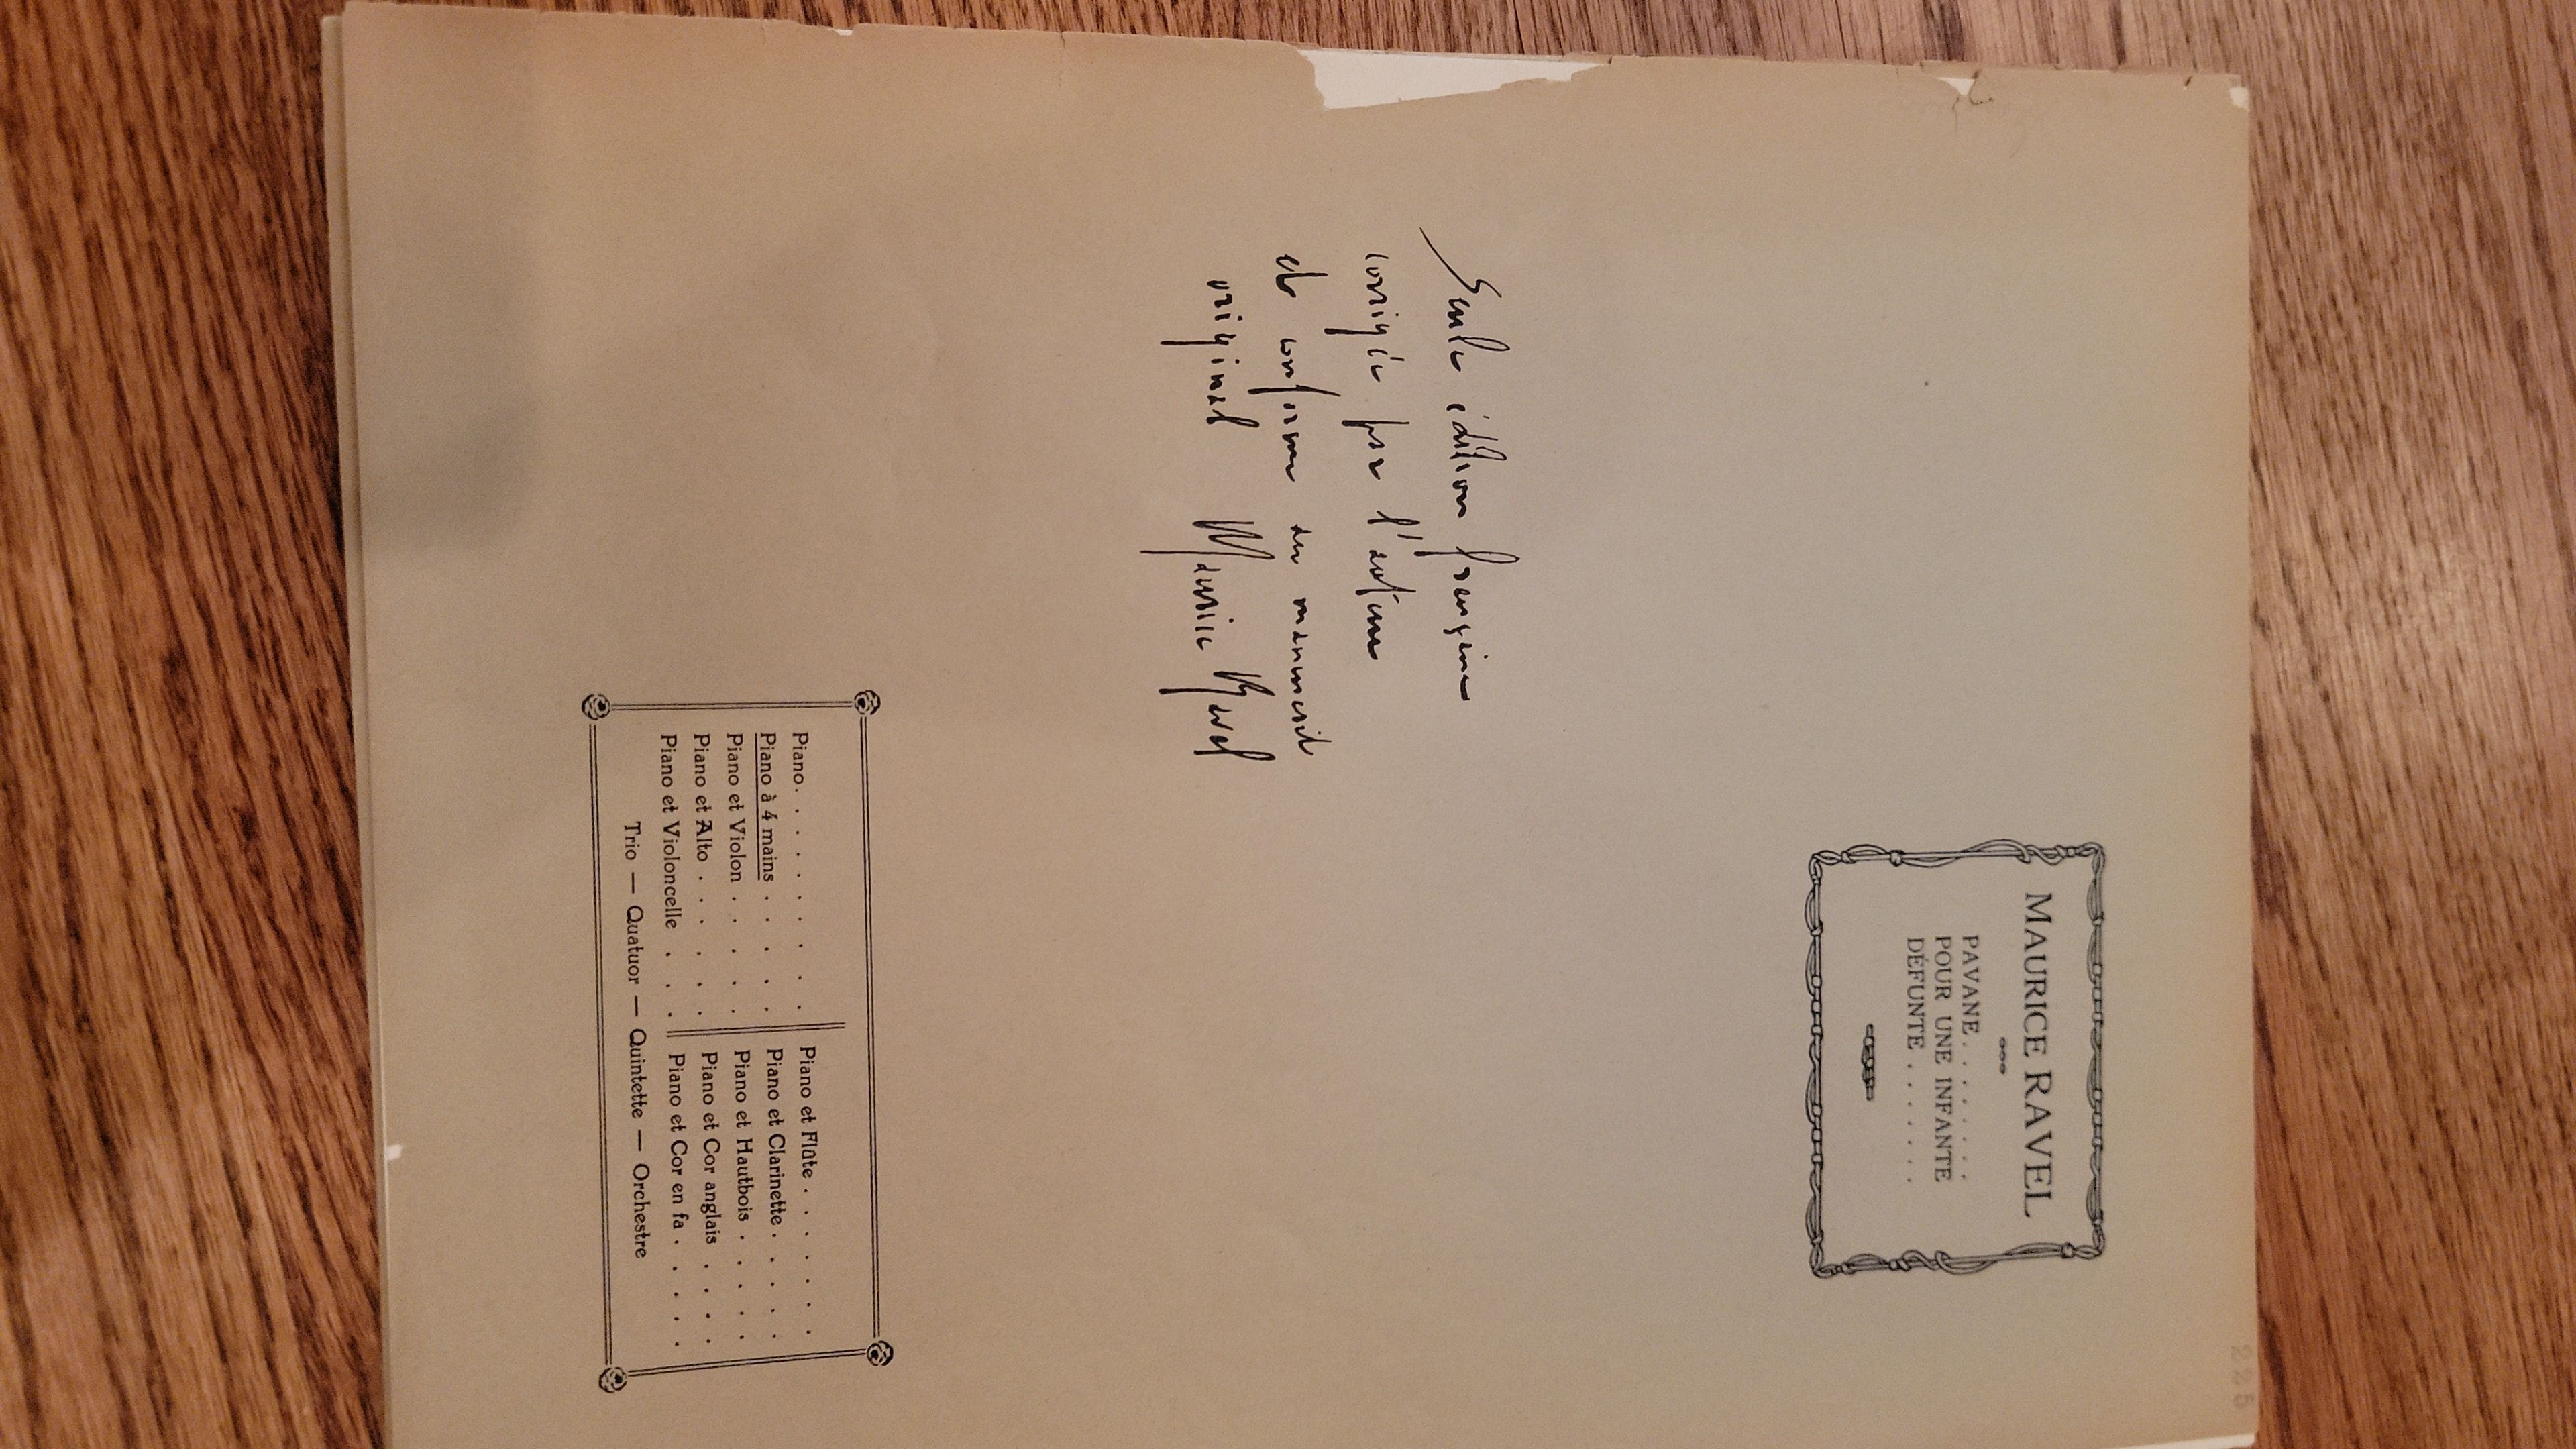 MAURICE RAVEL
PAVANE . . . . . . . .
POUR UNE INFANTE
DÉFUNTE . . . . . . .
Seule édition française
corrigée par l'auteur
et conforme au manuscrit
original Maurice Ravel
Piano . . . . . . . .
Piano à 4 mains . . . .
Piano et Violon . . . .
Piano et Alto . . . . .
Piano et Violoncelle . . .
Piano et Flûte . . . . . .
Piano et Clarinette . . . . .
Piano et Hautbois . . . . .
Piano et Cor anglais . . . .
Piano et Cor en fa . . . . .
Trio — Quatuor — Quintette — Orchestre
225